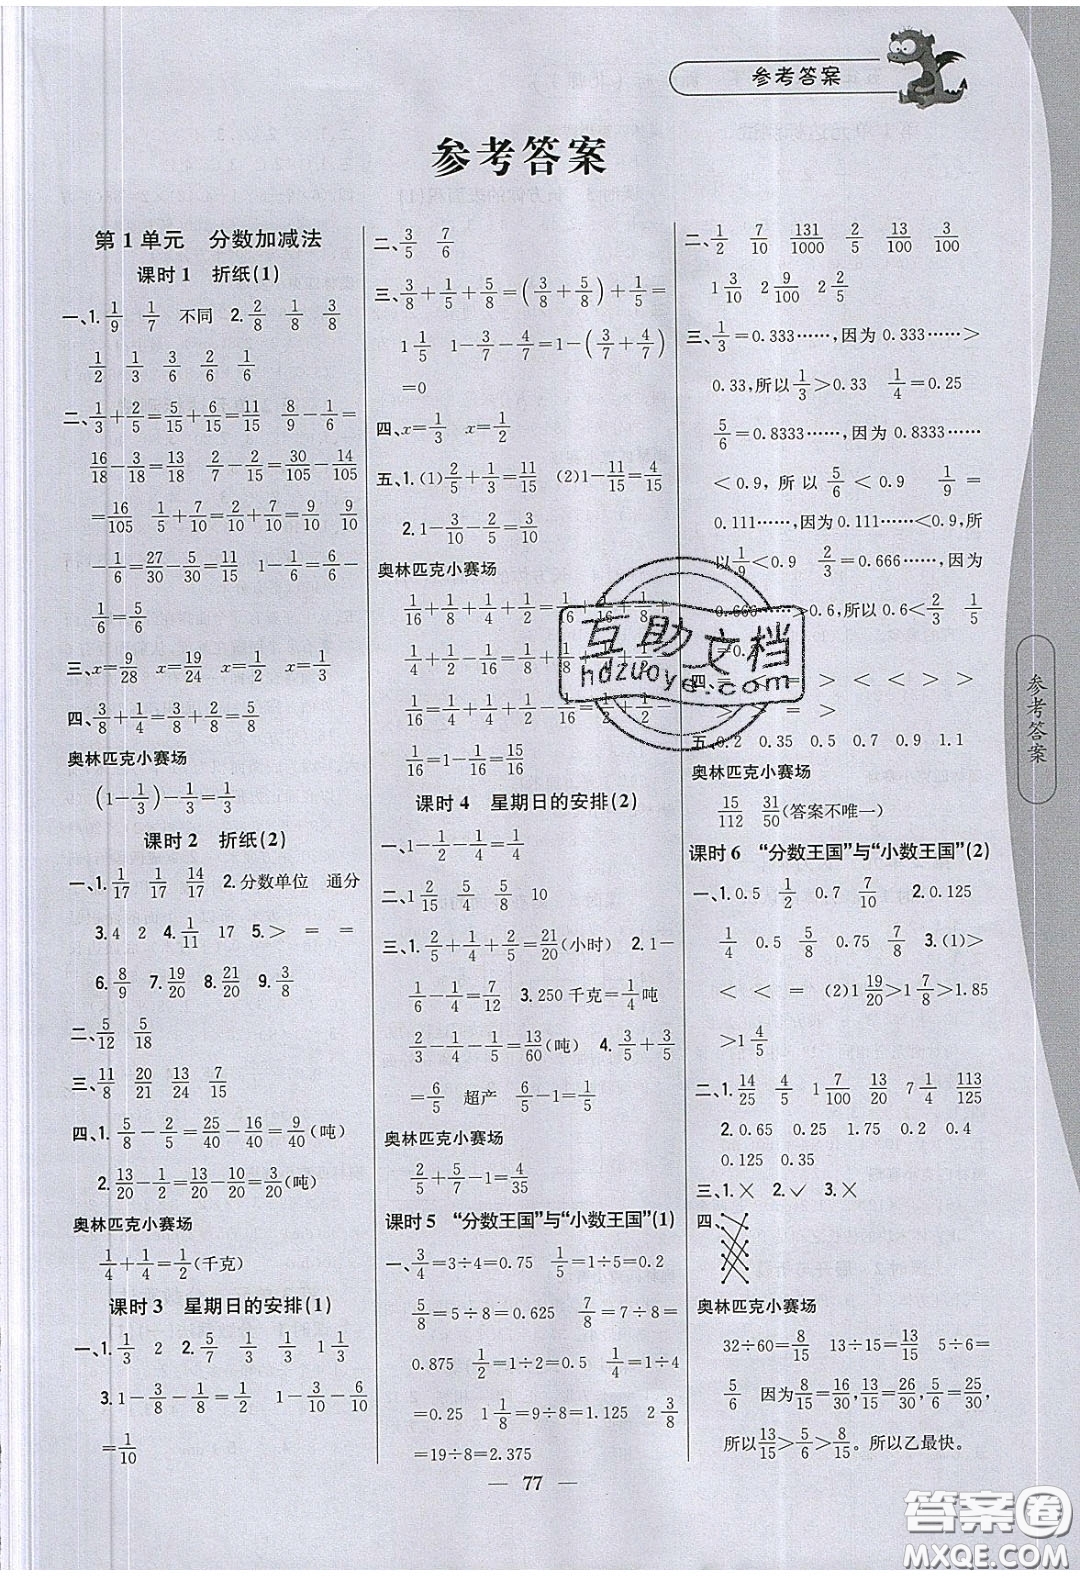 参考答案
参考答案
第1单元 分数加减法
课时1 折纸(1)
一、1. 1/9 1/7 不同 2. 2/8 1/8 3/8
1/2 1/3 3/6 2/6 1/6
二、1/3+2/5=5/15+6/15=11/15 8/9-1/6=
16/18-3/18=13/18 2/7-2/15=30/105-14/105
=16/105 1/5+7/10=2/10+7/10=9/10 9/10
-1/6=27/30-5/30=11/15 1-1/6=6/6-
1/6=5/6
三、x=9/28 x=19/24 x=1/2 x=1/3
四、3/8+1/4=3/8+2/8=5/8
奥林匹克小赛场
(1-1/3)-1/3=1/3
课时2 折纸(2)
一、1. 1/17 1/17 14/17 2.分数单位 通分
3.4 2 4. 1/11 17 5.> = =
6. 8/9 7. 19/20 8. 21/20 9. 3/8
二、5/12 5/18
三、11/8 20/21 13/24 7/15
四、1. 5/8-2/5=25/40-16/40=9/40(吨)
2. 13/20-1/2=13/20-10/20=3/20(吨)
奥林匹克小赛场
1/4+1/4=1/2(千克)
课时3 星期日的安排(1)
一、1. 1/3 2 2. 5/7 1/3 1/3 1 1/3
3.1-3/8-1/8=1/2 1-3/10-6/10
=1/10
二、3/5 7/6
三、3/8+1/5+5/8=(3/8+5/8)+1/5=
1 1/5 1-3/7-4/7=1-(3/7+4/7)
=0
四、x=1/3 x=1/2
五、1.(1)2/5+1/3=11/15 (2)1-11/15=4/15
2.1-3/10-2/5=3/10
奥林匹克小赛场
1/16+1/8+1/4+1/2=1/16+1/16+1/8+
1/4+1/2-1/16=1/8+1/8+
1/16=1/4+1/4+1/2-1/16=1/2+1/2-
1/16=1-1/16=15/16
课时4 星期日的安排(2)
一、1-1/2-1/4=1/4
二、1 2/15 4/5 5/8 10
三、1. 2/5+1/4+2/5=21/20(小时) 2.1-
1/6-1/4=7/12 3.250千克=1/4吨
2/3-1/4-1/5=13/60(吨) 4. 3/5+3/5
=6/5 超产 6/5-1=1/5
奥林匹克小赛场
2/5+5/7-1=4/35
课时5 “分数王国”与“小数王国”(1)
一、3/4=3÷4=0.75 1/5=1÷5=0.2
5/8=5÷8=0.625 7/8=7÷8=
0.875 1/2=1÷2=0.5 1/4=1÷4
=0.25 1 1/8=9÷8=1.125 2 3/8
=19÷8=2.375
二、1/2 7/10 131/1000 2/5 13/20 3/100
1 3/10 2 9/100 3/4
三、1/3=0.333……,因为0.333……>
0.33,所以1/3>0.33 1/4=0.25
5/6=0.8333……,因为0.8333……
<0.9,所以5/6<0.9 1/9=
0.111……,因为0.111……<0.9,所
以1/9<0.9 2/3=0.666……,因为
0.666……>0.6,所以0.6<2/3 1/5
=0.2
四、= = > < < > >
> > = >
五、0.2 0.35 0.5 0.9 1.1
奥林匹克小赛场
15/112 31/50(答案不唯一)
课时6 “分数王国”与“小数王国”(2)
一、1.0.5 1/2 0.7 7/10 2.0.125
1/4 0.5 5/8 0.75 7/8 3.(1)>
< < = (2)1 19/20>1 7/8>1.85
>1 4/5
二、1. 14/25 4/5 1 7/100 17/20 7 1/4 113/125
2.0.65 0.25 1.75 0.2 0.4
0.125 0.35
三、1.× 2.✓ 3.×
四、
奥林匹克小赛场
32÷60=8/15 13÷15=13/15 5÷6=
5/6 因为8/15=16/30,13/15=26/30,5/6=25/30,
所以13/15>5/6>8/15。所以乙最快。
参考答案
77
互助文档
hdzuoye.com
答案圈
MXQE.COM